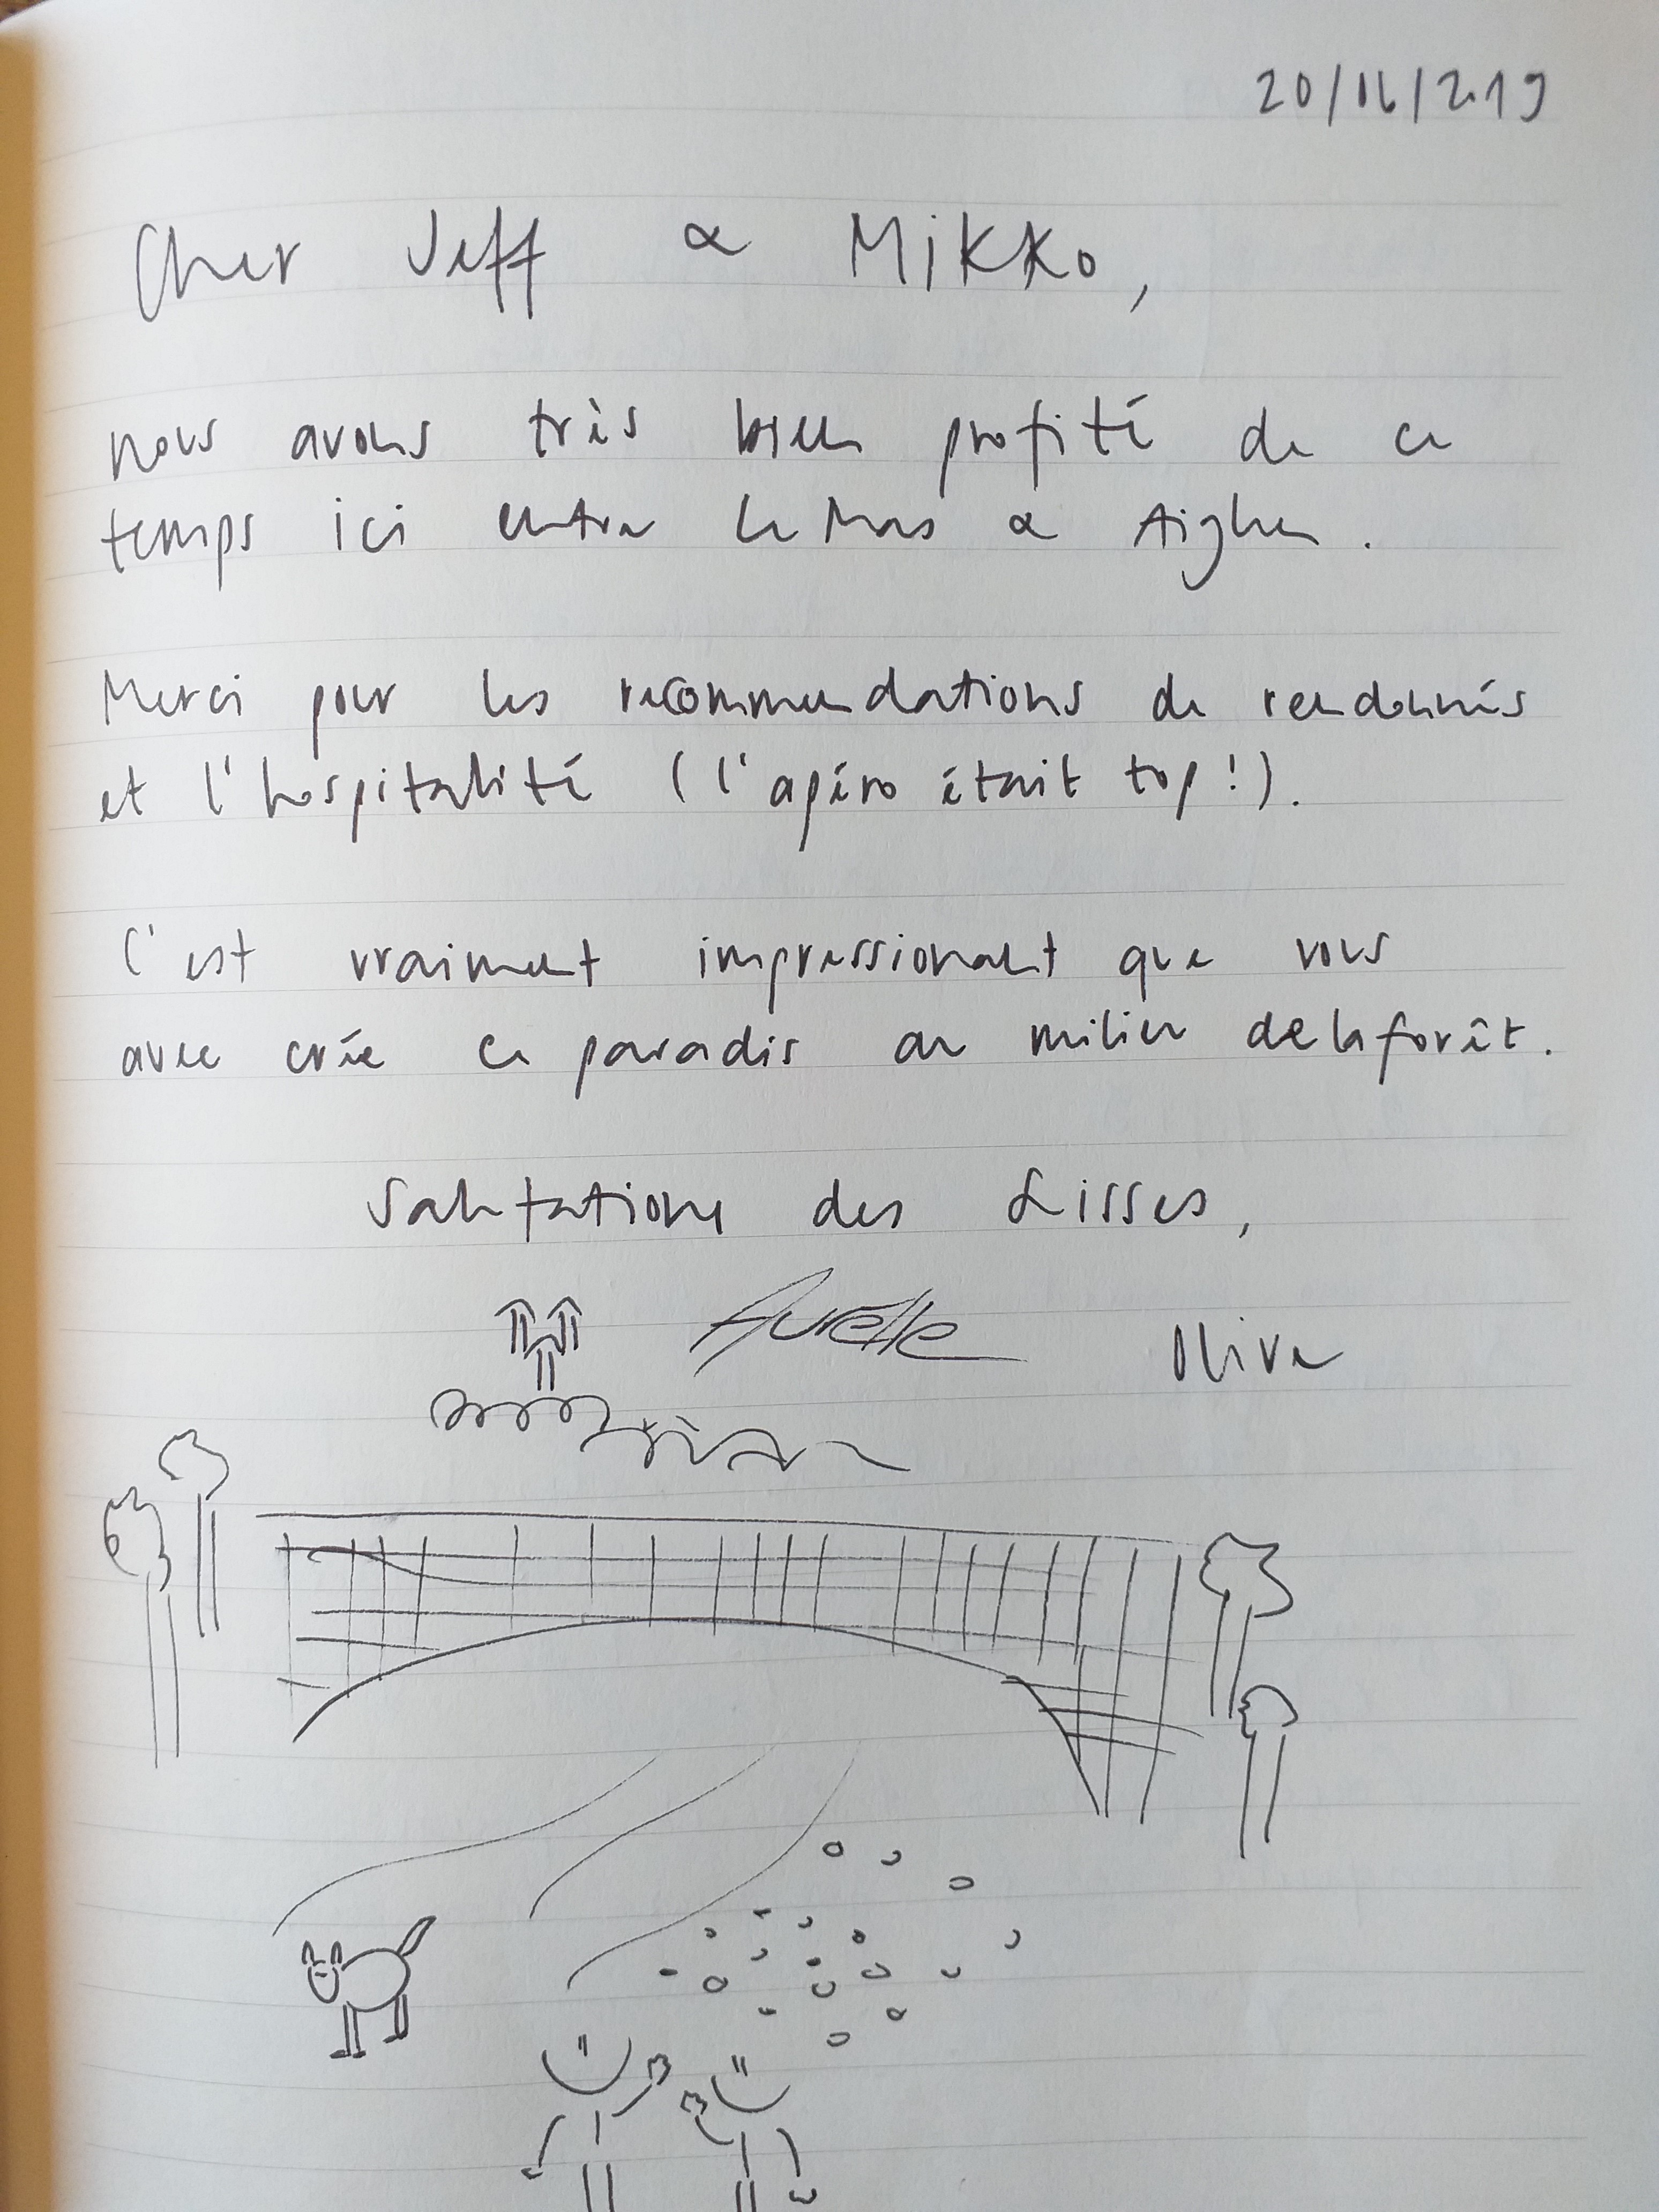 20/06/2019
Cher Jeff & Mikko,
nous avons très bien profité de ce
temps ici entre le Mas & Aighen.
Merci pour les recommendations de rendonnés
et l'hospitalité (l'apéro était top!).
C'est vraiment impressionant que vous
avec crée ce paradis au milieu de la forêt.
Salutations des
Aurelle Oliver